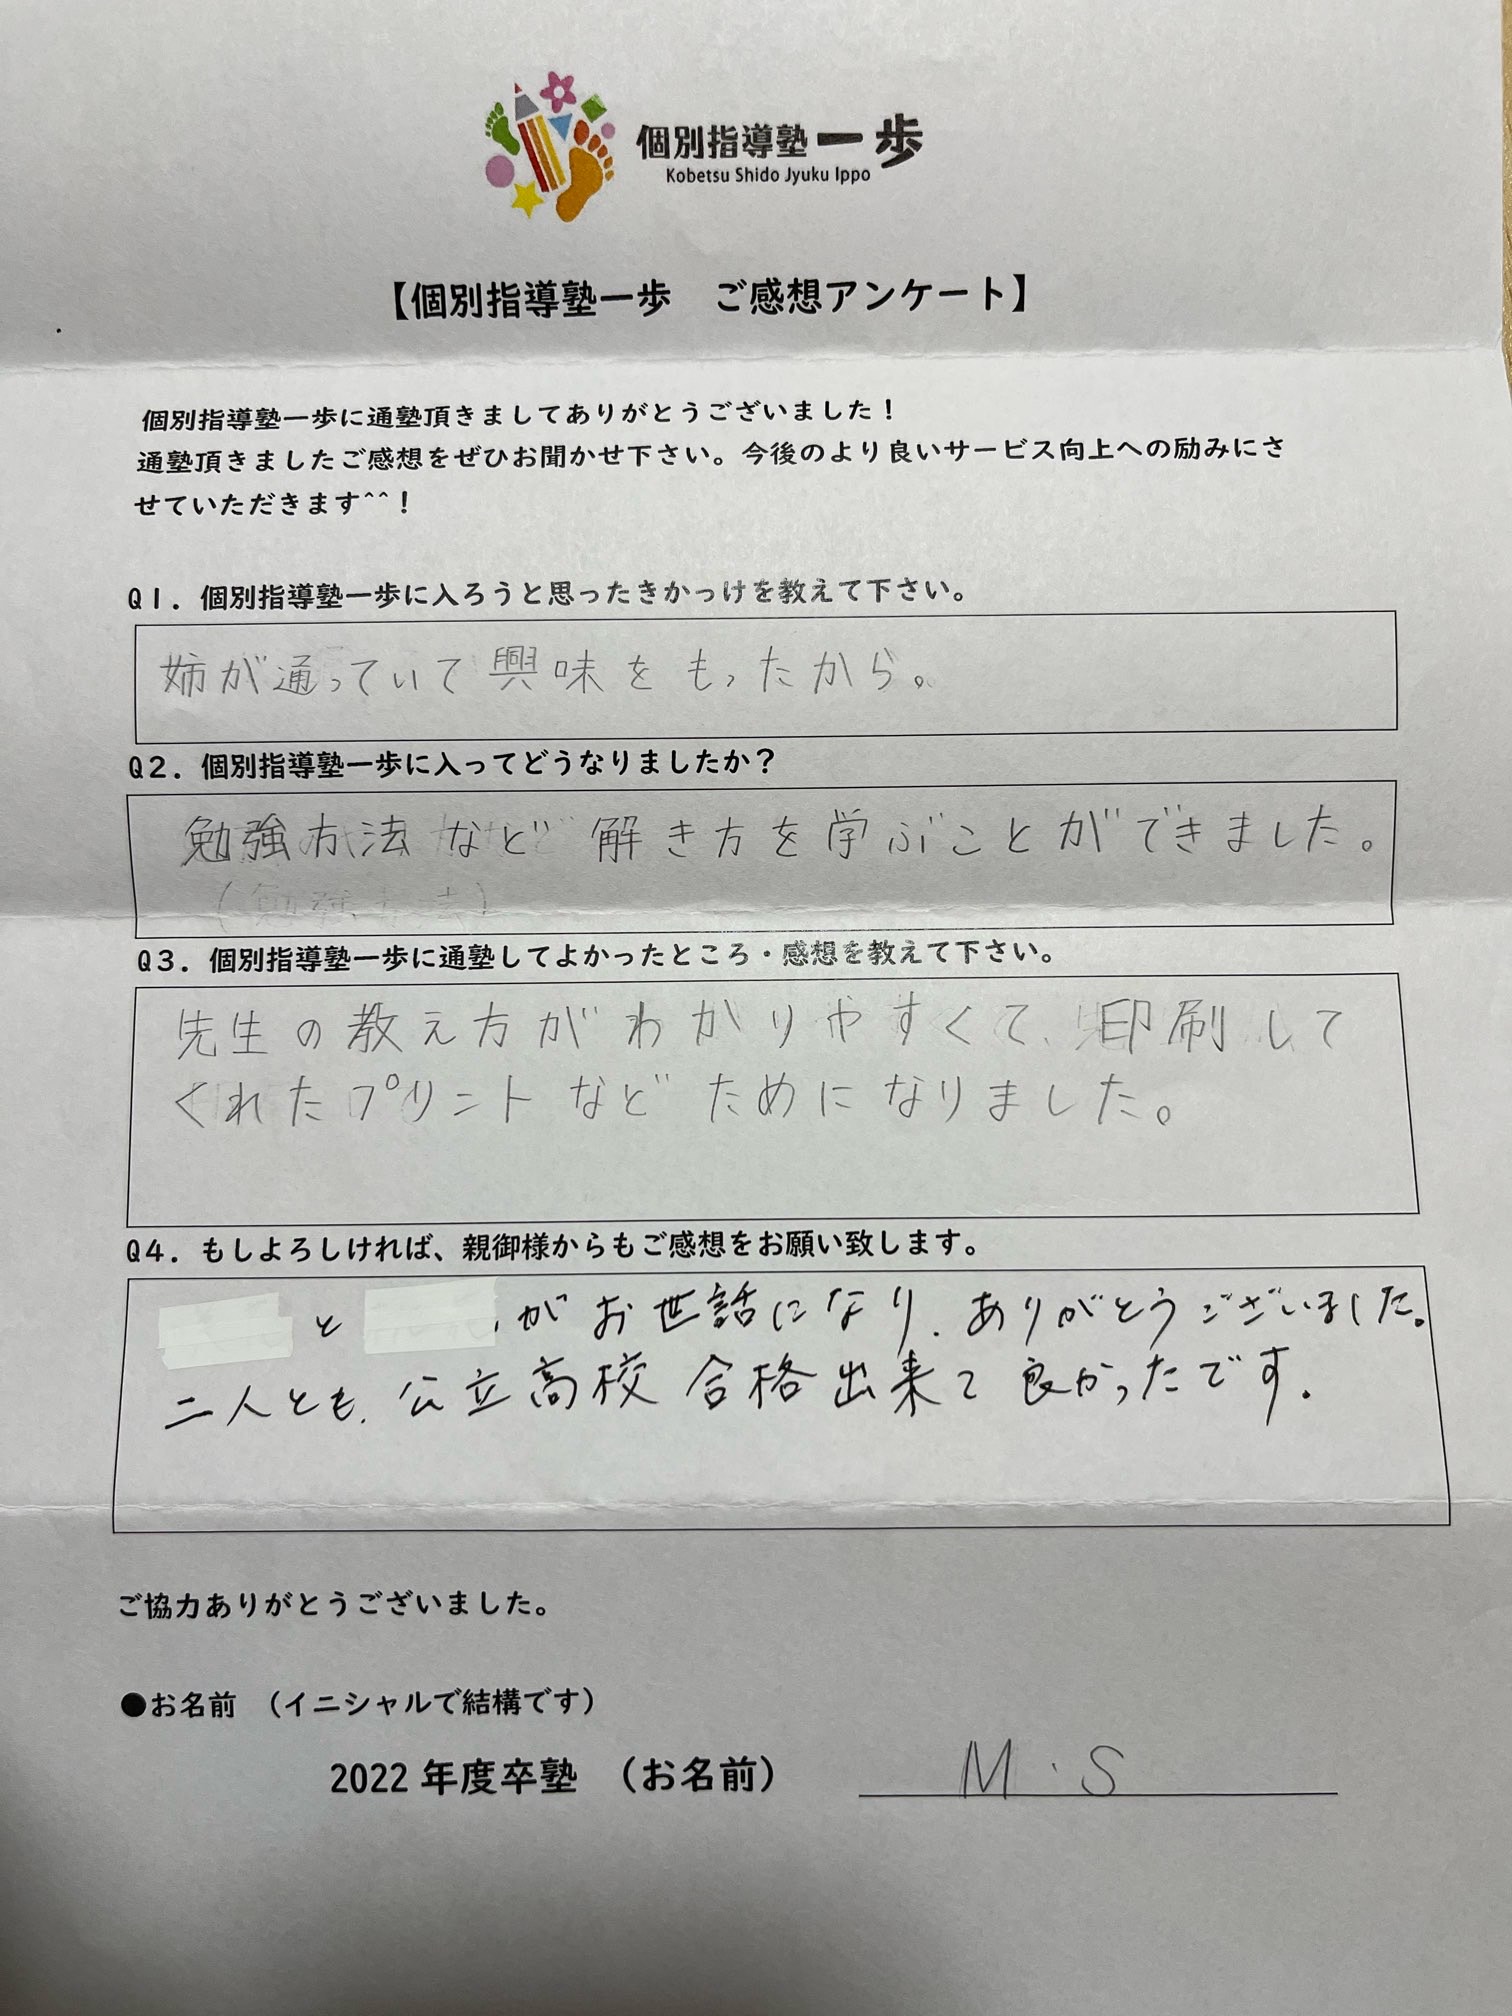 個別指導塾一歩
Kobetsu Shido Jyuku Ippo
【個別指導塾一歩　ご感想アンケート】
個別指導塾一歩に通塾頂きましてありがとうございました！
通塾頂きましたご感想をぜひお聞かせ下さい。今後のより良いサービス向上への励みにさ
せていただきます^^！
Q1．個別指導塾一歩に入ろうと思ったきかっけを教えて下さい。
姉が通っていて興味をもったから。
Q2．個別指導塾一歩に入ってどうなりましたか？
勉強方法など解き方を学ぶことができました。
Q3．個別指導塾一歩に通塾してよかったところ・感想を教えて下さい。
先生の教え方がわかりやすくて、印刷して
くれたプリントなどためになりました。
Q4．もしよろしければ、親御様からもご感想をお願い致します。
と　　がお世話になり、ありがとうございました。
二人とも、公立高校合格出来て良かったです。
ご協力ありがとうございました。
●お名前　（イニシャルで結構です）
2022年度卒塾　（お名前）　M・S